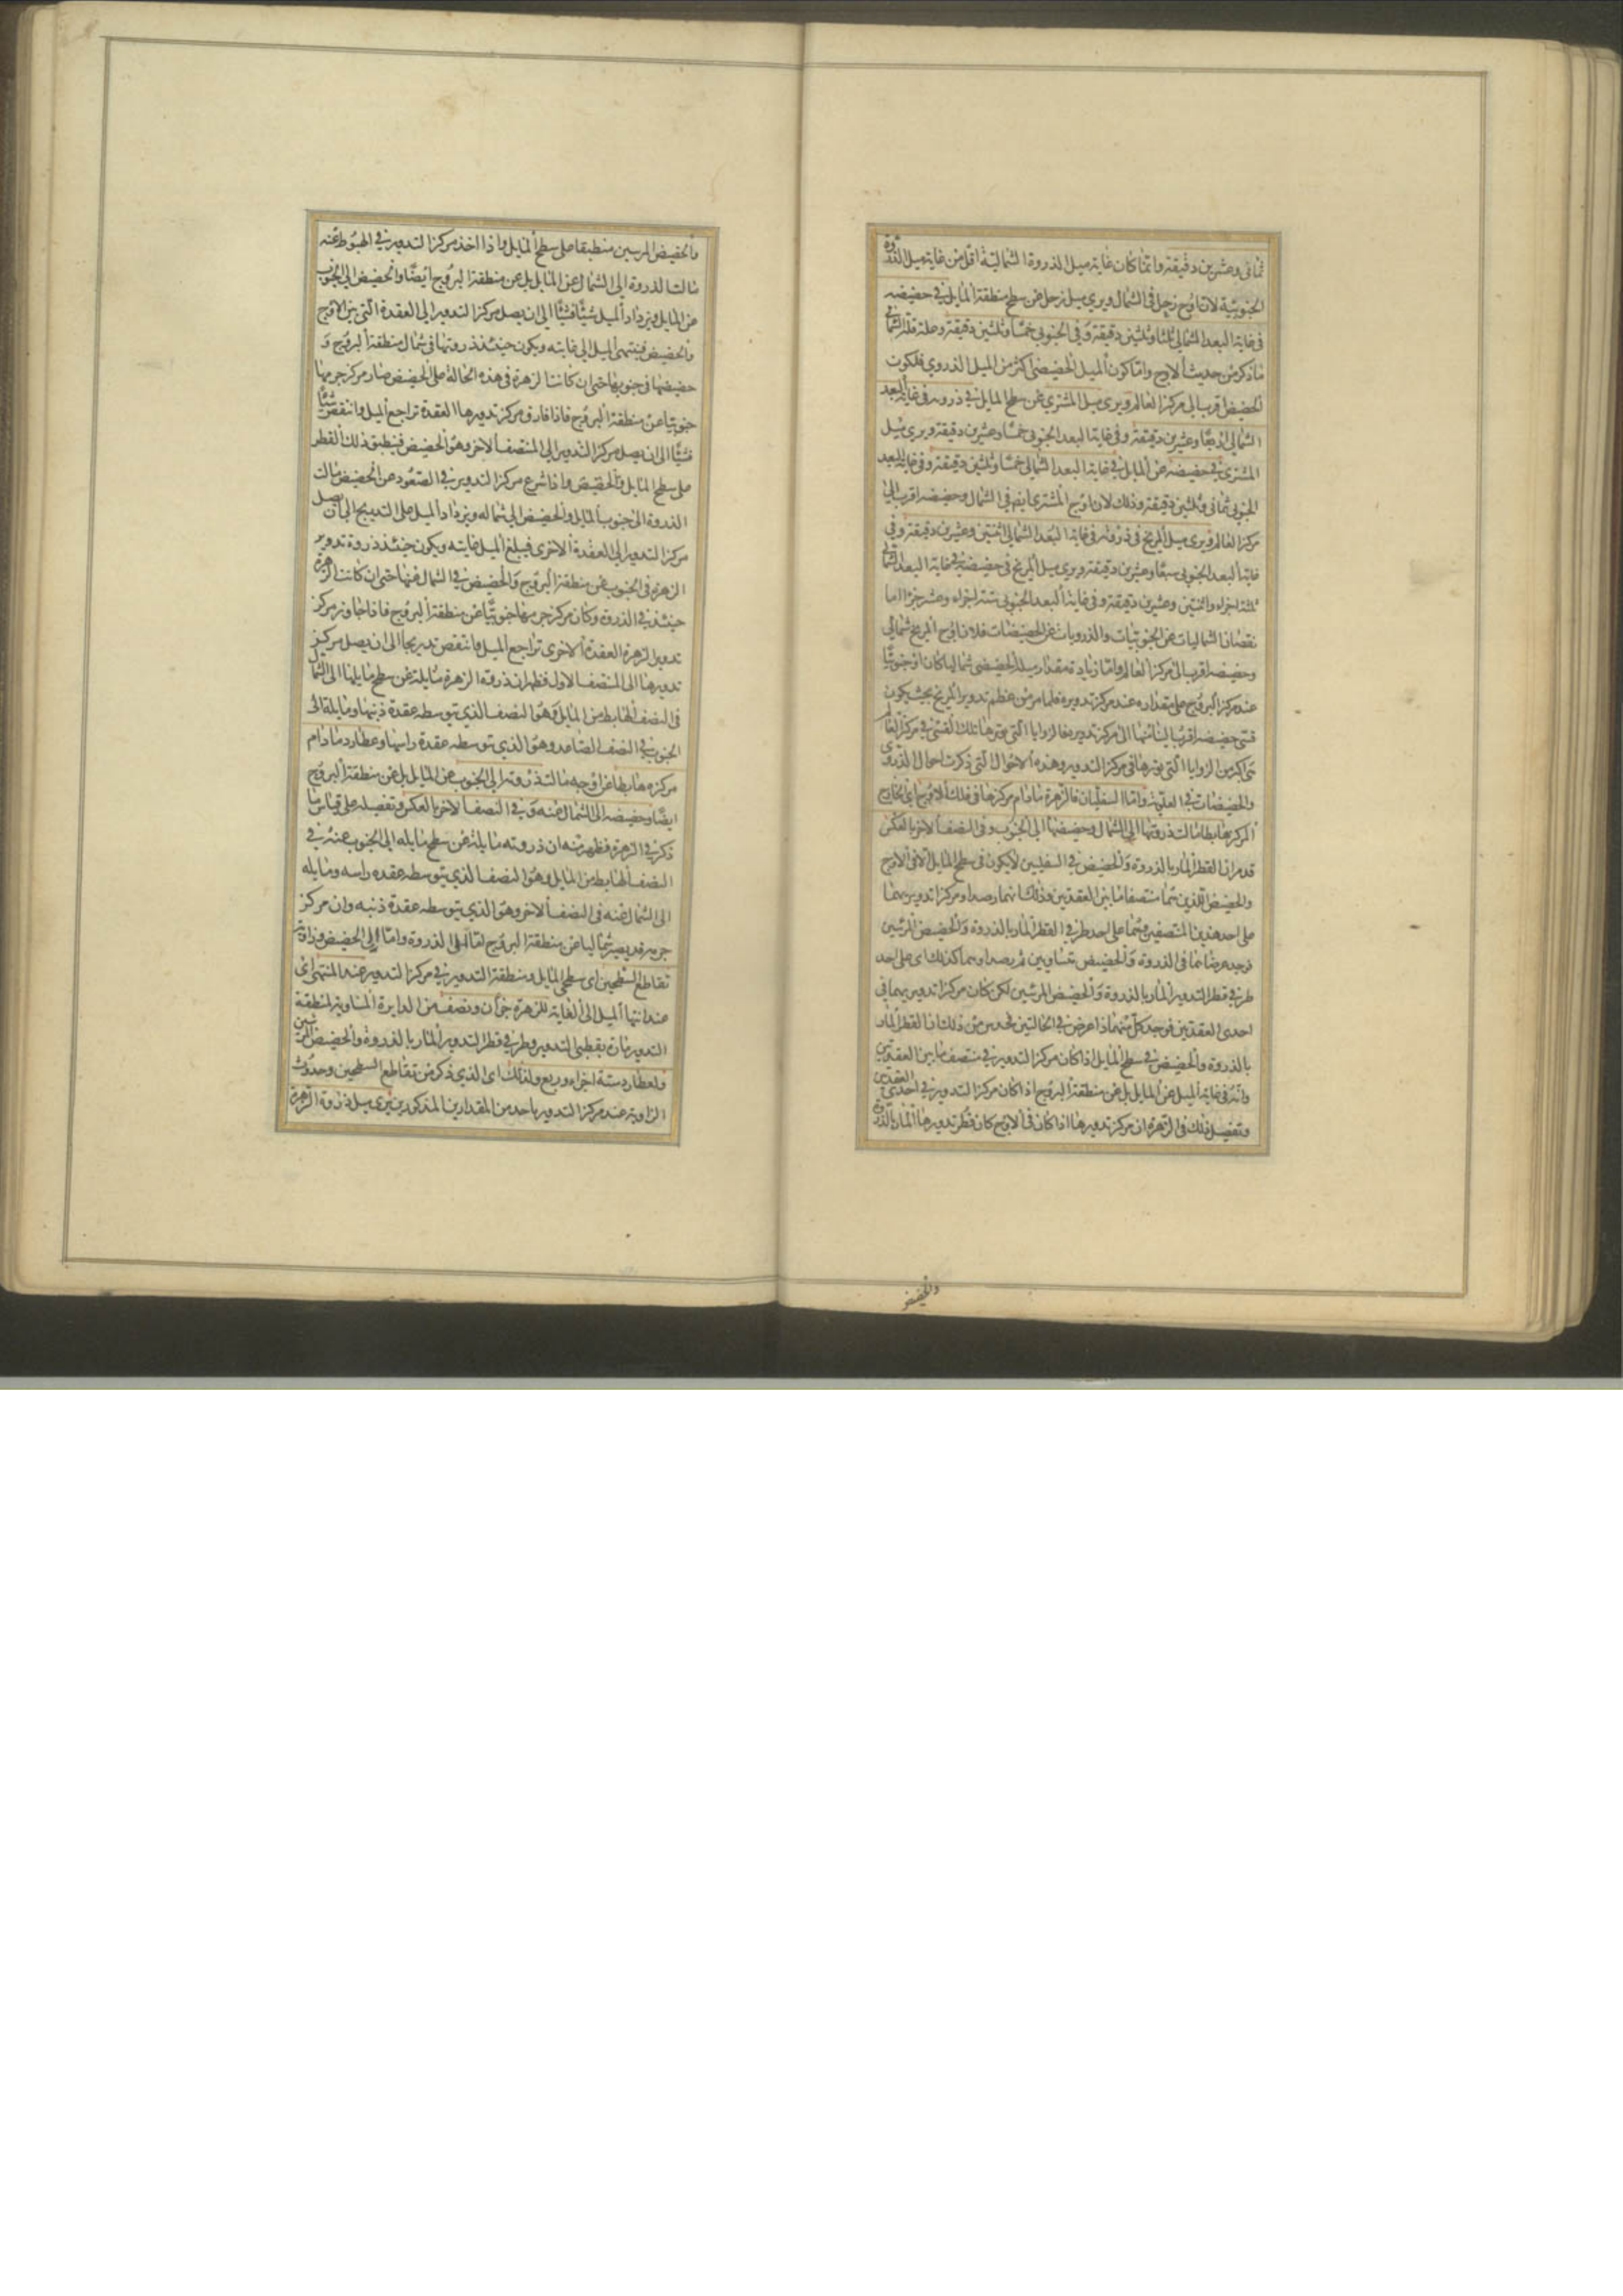 ثماني وعشرين دقيقة وانما كان غاية ميل الذروة الشمالية اقل من غاية ميل الذروة
الجنوبية لان اوج زحل في الشمال ويرى ميل زحل عن سطح منطقة المايل في حضيضه
في غاية البعد الشمالي ثلثا وثلثين دقيقة وفي الجنوبي خمسا وثلثين دقيقة وعلة قلة الشمالي
ما ذكر من حديث الاوج واما كون الميل الحضيضي اكثر من الميل الذروي فلكون
الحضيض اقرب الى مركز العالم ويرى ميل المشتري عن سطح المايل في ذروته في غاية البعد
الشمالي اربعا وعشرين دقيقة وفي غاية البعد الجنوبي خمسا وعشرين دقيقة ويرى ميل
المشتري في حضيضه عن المايل في غاية البعد الشمالي خمسا وثلثين دقيقة وفي غاية البعد
الجنوبي ثماني وثلثين دقيقة وذلك لان اوج المشتري ايضا في الشمال وحضيضه اقرب الى
مركز العالم ويرى ميل المريخ في ذروته في غاية البعد الشمالي اثنتين وعشرين دقيقة وفي
غاية البعد الجنوبي سبعا وعشرين دقيقة ويرى ميل المريخ في حضيضه في غاية البعد الشمالي
ثلثة اجزاء واثنتين وعشرين دقيقة وفي غاية البعد الجنوبي ستة اجزاء وعشر جزء اما
نقصان الشماليات عن الجنوبيات والذرويات عن الحضيضيات فلان اوج المريخ شمالي
وحضيضه اقرب الى مركز العالم واما زيادة مقدار ميله الحضيضي شماليا كان او جنوبيا
عند مركز البروج على مقداره عند مركز تدويره فلما مر من عظم تدوير المريخ بحيث يكون
قسي حضيضه اقرب الينا منها الى مركز تدويره فالزوايا التي يوترها تلك القسي في مركز العالم
تري اكبر من الزوايا التي يوترها في مركز التدوير وهذه الاحوال التي ذكرت احوال الذروي
والحضيضات في العلوية واما السفليان فالزهرة ما دام مركزها في فلك الاوج اي الخارج
المركز هابطا مالت ذروتها الى الشمال وحضيضها الى الجنوب وفي النصف الاخر بالعكس
قد مر ان القطر المار بالذروة والحضيض في السفليين لا يكون في سطح المايل الا في الاوج
والحضيض اللذين هما منتصفا ما بين العقدتين وذلك انهما رصدا ومركزا تدويريهما
على احد هذين المنتصفين وهما على احد طرفي القطر المار بالذروة والحضيض المرئيين
فوجد عرضاهما في الذروة والحضيض متساويين ثم رصدا وهما كذلك اي على احد
طرفي قطر التدوير المار بالذروة والحضيض المرئيين لكن كان مركزا تدويريهما في
احدى العقدتين فوجد كل منهما ذا عرض في الحالتين فحدس من ذلك ان القطر المار
بالذروة والحضيض في سطح المايل اذا كان مركز التدوير في منتصف ما بين العقدتين
وانه في غاية الميل عن المايل بل عن منطقة البروج اذا كان مركز التدوير في احدى العقدتين
وتفصيل ذلك في الزهرة ان مركز تدويرها اذا كان في الاوج كان قطر تدويرها المار بالذروة
والحضيض
والحضيض المرئيين منطبقا على سطح المايل واذا اخذ مركز التدوير في الهبوط عنه
مالت الذروة الى الشمال عن المايل بل عن منطقة البروج ايضا والحضيض الى الجنوب
عن المايل ويزداد الميل شيئا فشيئا الى ان يصل مركز التدوير الى العقدة التي بين الاوج
والحضيض فينتهي الميل الى غايته ويكون حينئذ ذروتها في شمال منطقة البروج و
حضيضها في جنوبها حتى ان كانت الزهرة في هذه الحالة على الحضيض صار مركز جرمها
جنوبيا عن منطقة البروج فاذا فارق مركز تدويرها العقدة تراجع الميل وانتقص شيئا
فشيئا الى ان يصل مركز التدوير الى المنتصف الاخر وهو الحضيض فينطبق ذلك القطر
على سطح المايل والحضيض واذا شرع مركز التدوير في الصعود عن الحضيض مالت
الذروة الى جنوب المايل والحضيض الى شماله ويزداد الميل على التدريج الى ان يصل
مركز التدوير الى العقدة الاخرى فيبلغ الميل غايته ويكون حينئذ ذروة تدوير
الزهرة في الجنوب عن منطقة البروج والحضيض في الشمال عنها حتى ان كانت الزهرة
حينئذ في الذروة وكان مركز جرمها جنوبيا عن منطقة البروج فاذا جاوز مركز
تدوير الزهرة العقدة الاخرى تراجع الميل وانتقص تدريجا الى ان يصل مركز
تدويرها الى المنتصف الاول فظهر ان ذروة الزهرة مايلة عن سطح مايلها الى الشمال
في النصف الهابط من المايل وهو النصف الذي توسطه عقدة ذنبها ومايلة الى
الجنوب في النصف الصاعد وهو الذي توسطه عقدة راسها وعطارد ما دام
مركزه هابطا عن اوجه مالت ذروته الى الجنوب عن المايل بل عن منطقة البروج
ايضا وحضيضه الى الشمال عنه وفي النصف الاخر بالعكس وتفصيله على قياس ما
ذكر في الزهرة فظهر منه ان ذروته مايلة عن سطح مايله الى الجنوب عنه في
النصف الهابط من المايل وهو النصف الذي يتوسطه عقدة راسه ومايله
الى الشمال عنه في النصف الاخر وهو الذي يتوسطه عقدة ذنبه وان مركز
جرمه قد يصير شماليا عن منطقة البروج اما الى الذروة واما الى الحضيض وزاوية
تقاطع السطحين اى سطحي المايل ومنطقة التدوير في مركز التدوير عند المنتهى اى
عند انتهاء الميل الى الغاية للزهرة جزآن ونصف من الدايرة المساوية لمنطقة
التدوير مارة بقطبي التدوير وطرفي قطر التدوير المار بالذروة والحضيض المرئيين
ولعطارد ستة اجزاء وربع ولذلك اى الذي ذكر من تقاطع السطحين وحدوث
الزاوية عند مركز التدوير باحد من المقدارين المذكورين يرى ميل ذروة الزهرة